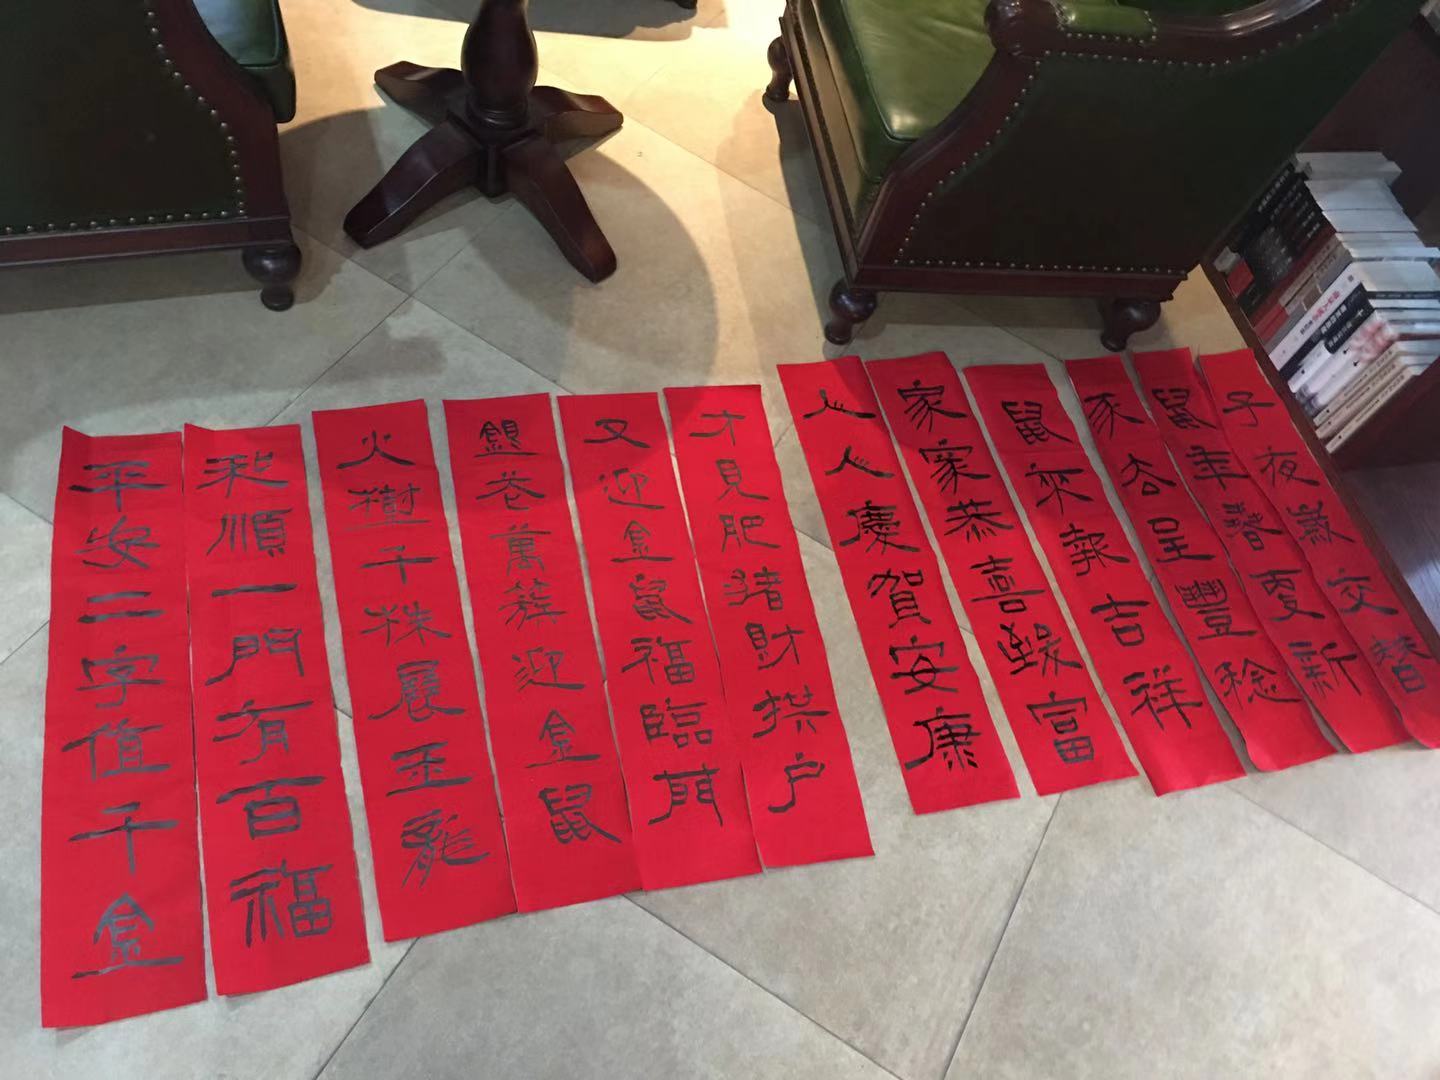 子夜歲交替
鼠年春更新
豕去呈豐稔
鼠來報吉祥
家家恭喜致富
人人慶賀安康
才見肥猪財拱户
又迎金鼠福臨門
巷萬簇迎金鼠
火樹千株展玉龍
和順一門有百福
平安二字值千金